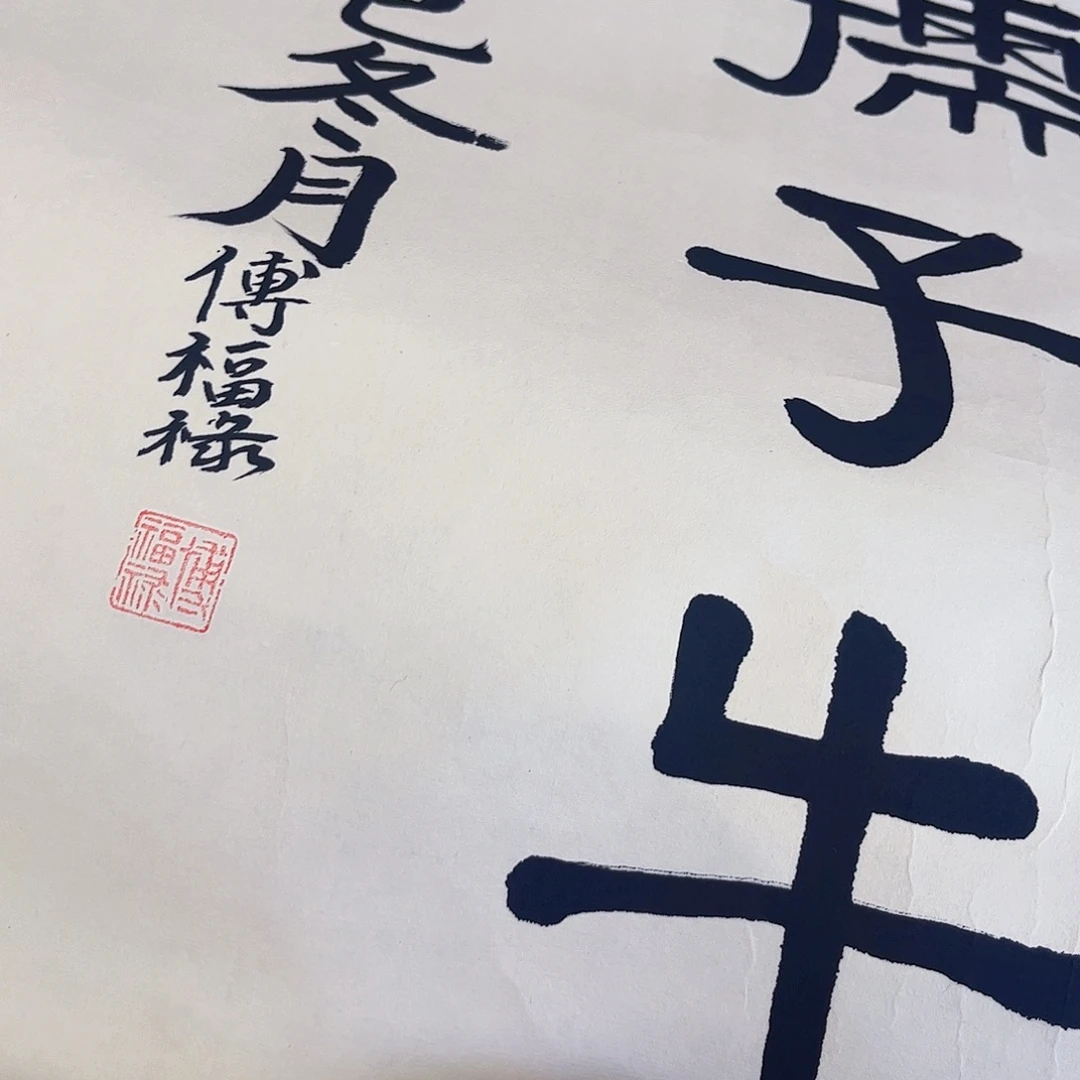 孺子牛
巳冬月傅福祿
傅福祿